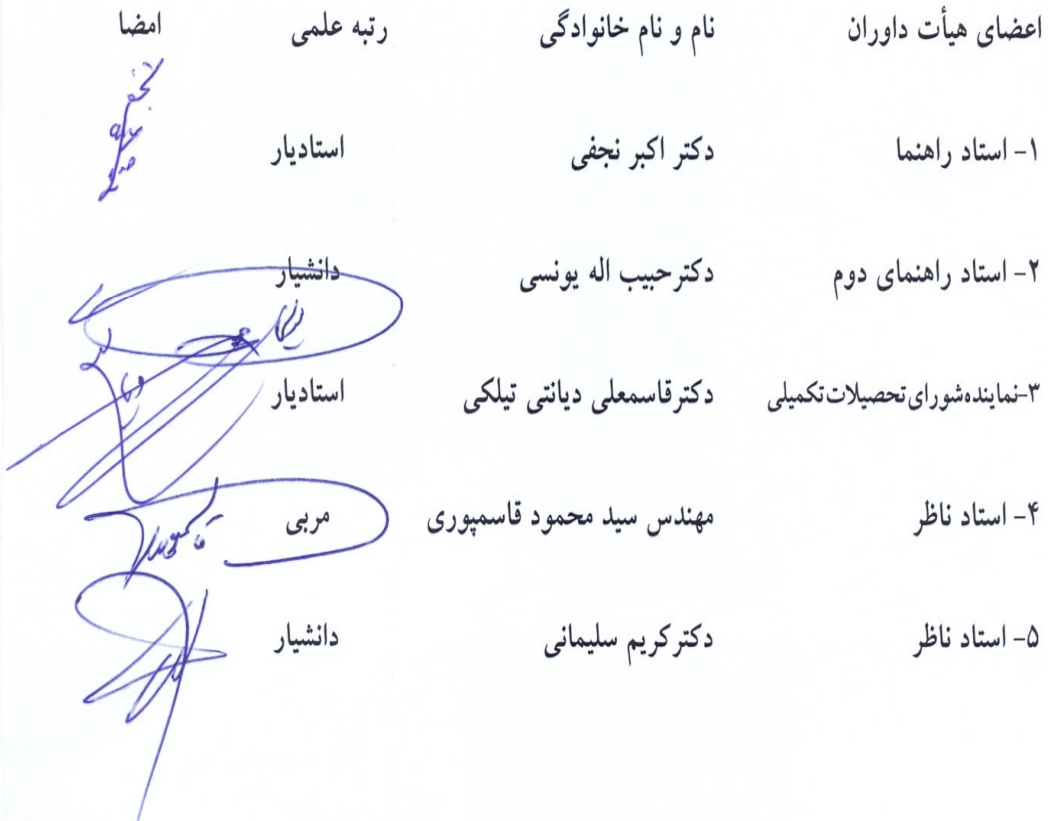 اعضای هیأت داوران نام و نام خانوادگی رتبه علمی امضا
۱- استاد راهنما دکتر اکبر نجفی استادیار
۲- استاد راهنمای دوم دکترحبیب اله یونسی دانشیار
۳-نماینده‌شورای‌تحصیلات‌تکمیلی دکترقاسمعلی دیانتی تیلکی استادیار
۴- استاد ناظر مهندس سید محمود قاسمپوری مربی
۵- استاد ناظر دکترکریم سلیمانی دانشیار